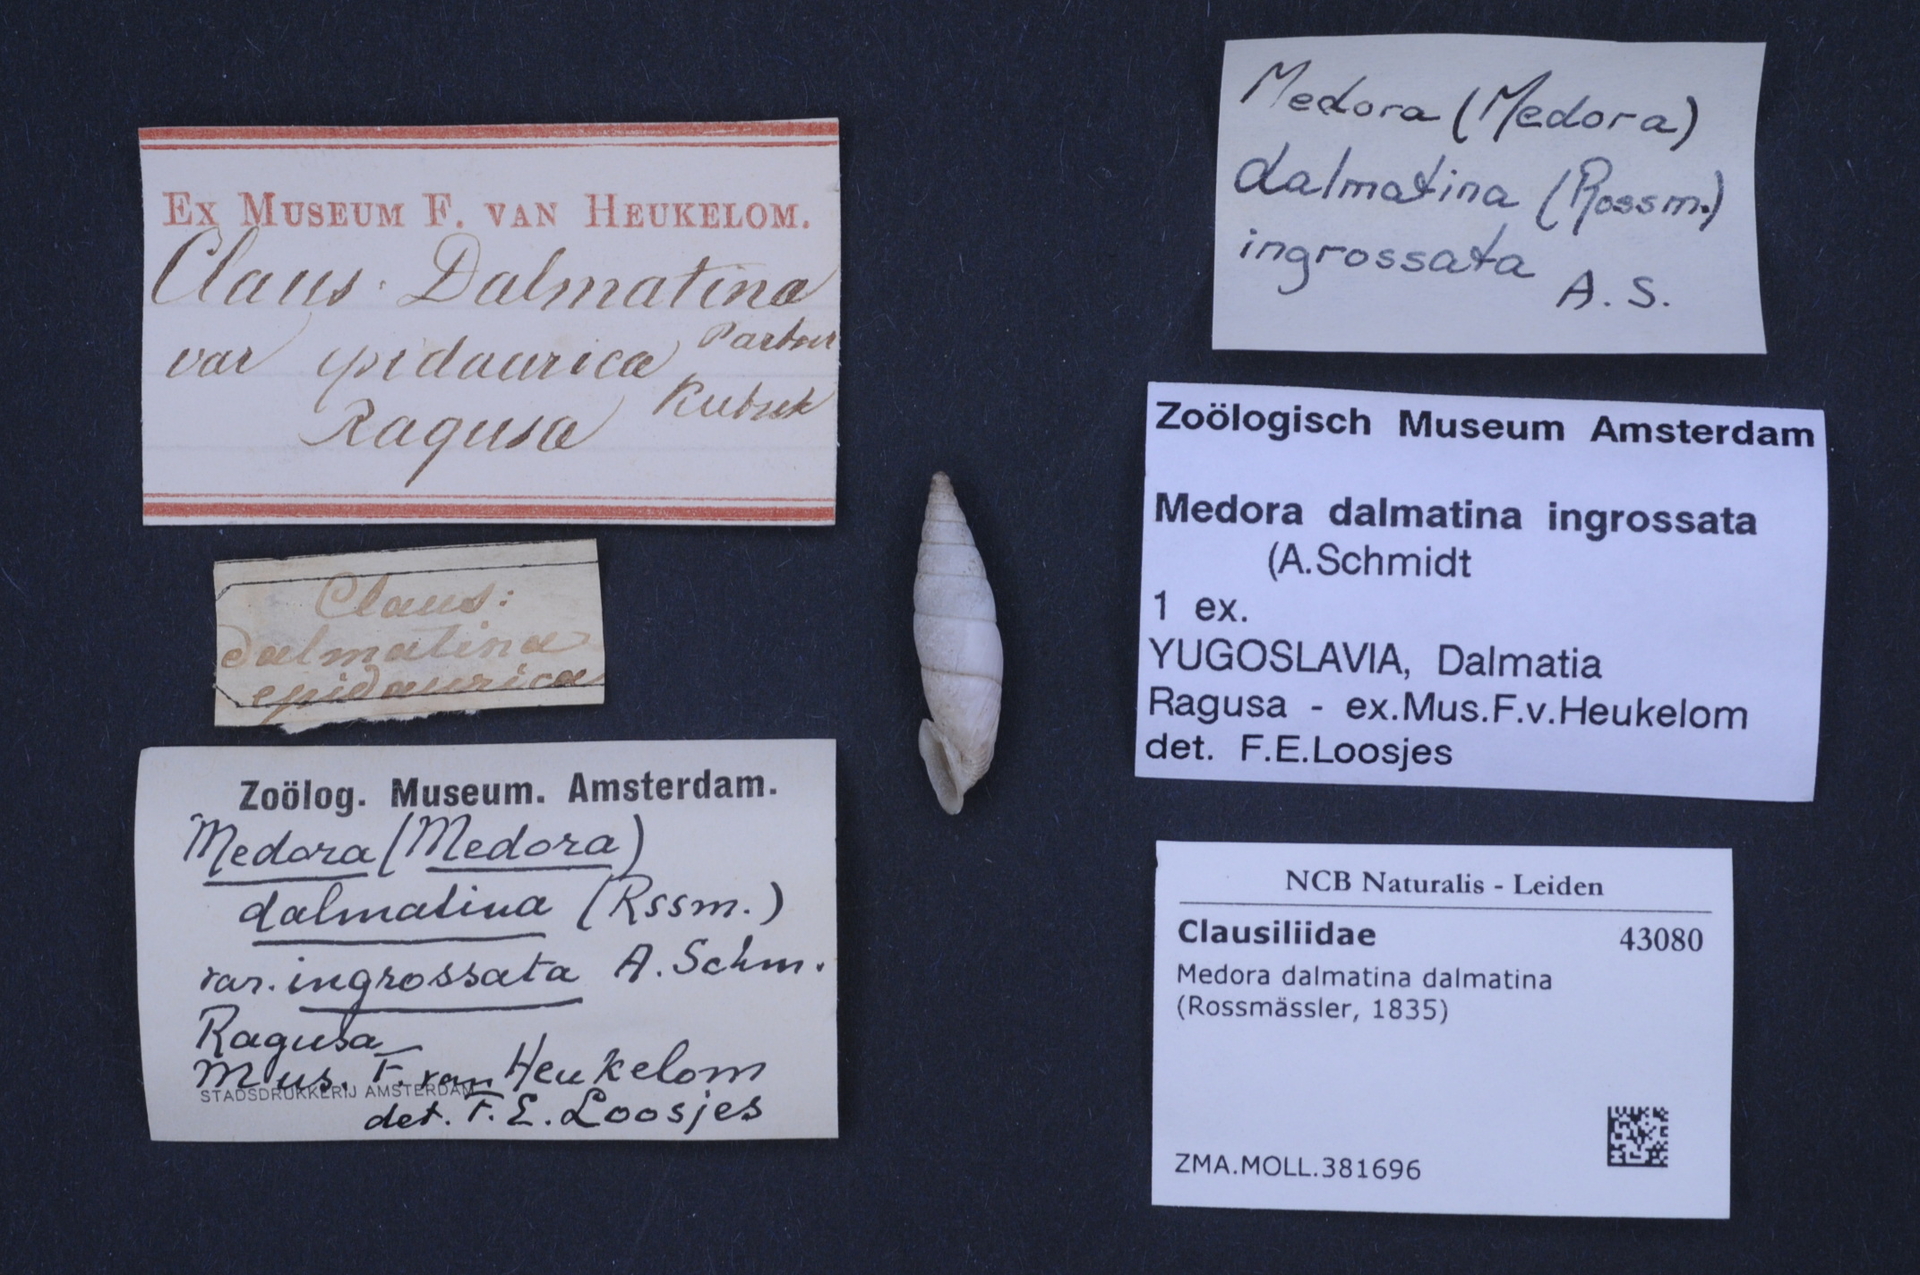 Ex Museum F. van Heukelom.
Claus. Dalmatina
var epidaurica
Ragusa
Claus:
dalmatina
epidaurica
Zoölog. Museum. Amsterdam.
Medora (Medora)
dalmatina (Rssm.)
var. ingrossata A. Schm.
Ragusa
Mus. F. van Heukelom
STADSDRUKKERIJ AMSTERDAM
det. F. E. Loosjes
Medora (Medora)
dalmatina (Rossm.)
ingrossata A. S.
Zoölogisch Museum Amsterdam
Medora dalmatina ingrossata
(A.Schmidt
1 ex.
YUGOSLAVIA, Dalmatia
Ragusa - ex.Mus.F.v.Heukelom
det. F.E.Loosjes
NCB Naturalis - Leiden
Clausiliidae 43080
Medora dalmatina dalmatina
(Rossmässler, 1835)
ZMA.MOLL.381696